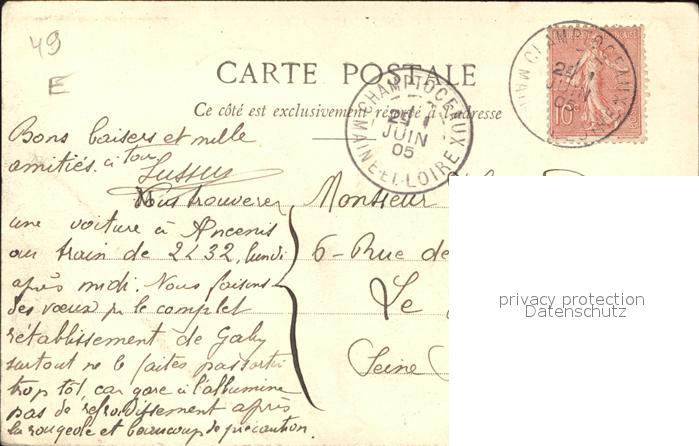 49
E
CARTE POSTALE
Ce côté est exclusivement réservé à l'adresse
CHAMPTOCEAUX
24
JUIN
05
MAINE-ET-LOIRE
CHAMPTOCEAUX
24
JUIN
05
10c
Bons baisers et mille
amitiés à tous
Vous trouverez
une voiture à Ancenis
au train de 2h32, lundi
après midi. Nous faisons
des vœux pr le complet
rétablissement de Gaby
surtout ne le faites pas sortir
trop tôt, car gare à l'albumine
pas de refroidissement après
la rougeole et beaucoup de précaution.
Monsieur
6 - Rue de
Le
Seine
privacy protection
Datenschutz